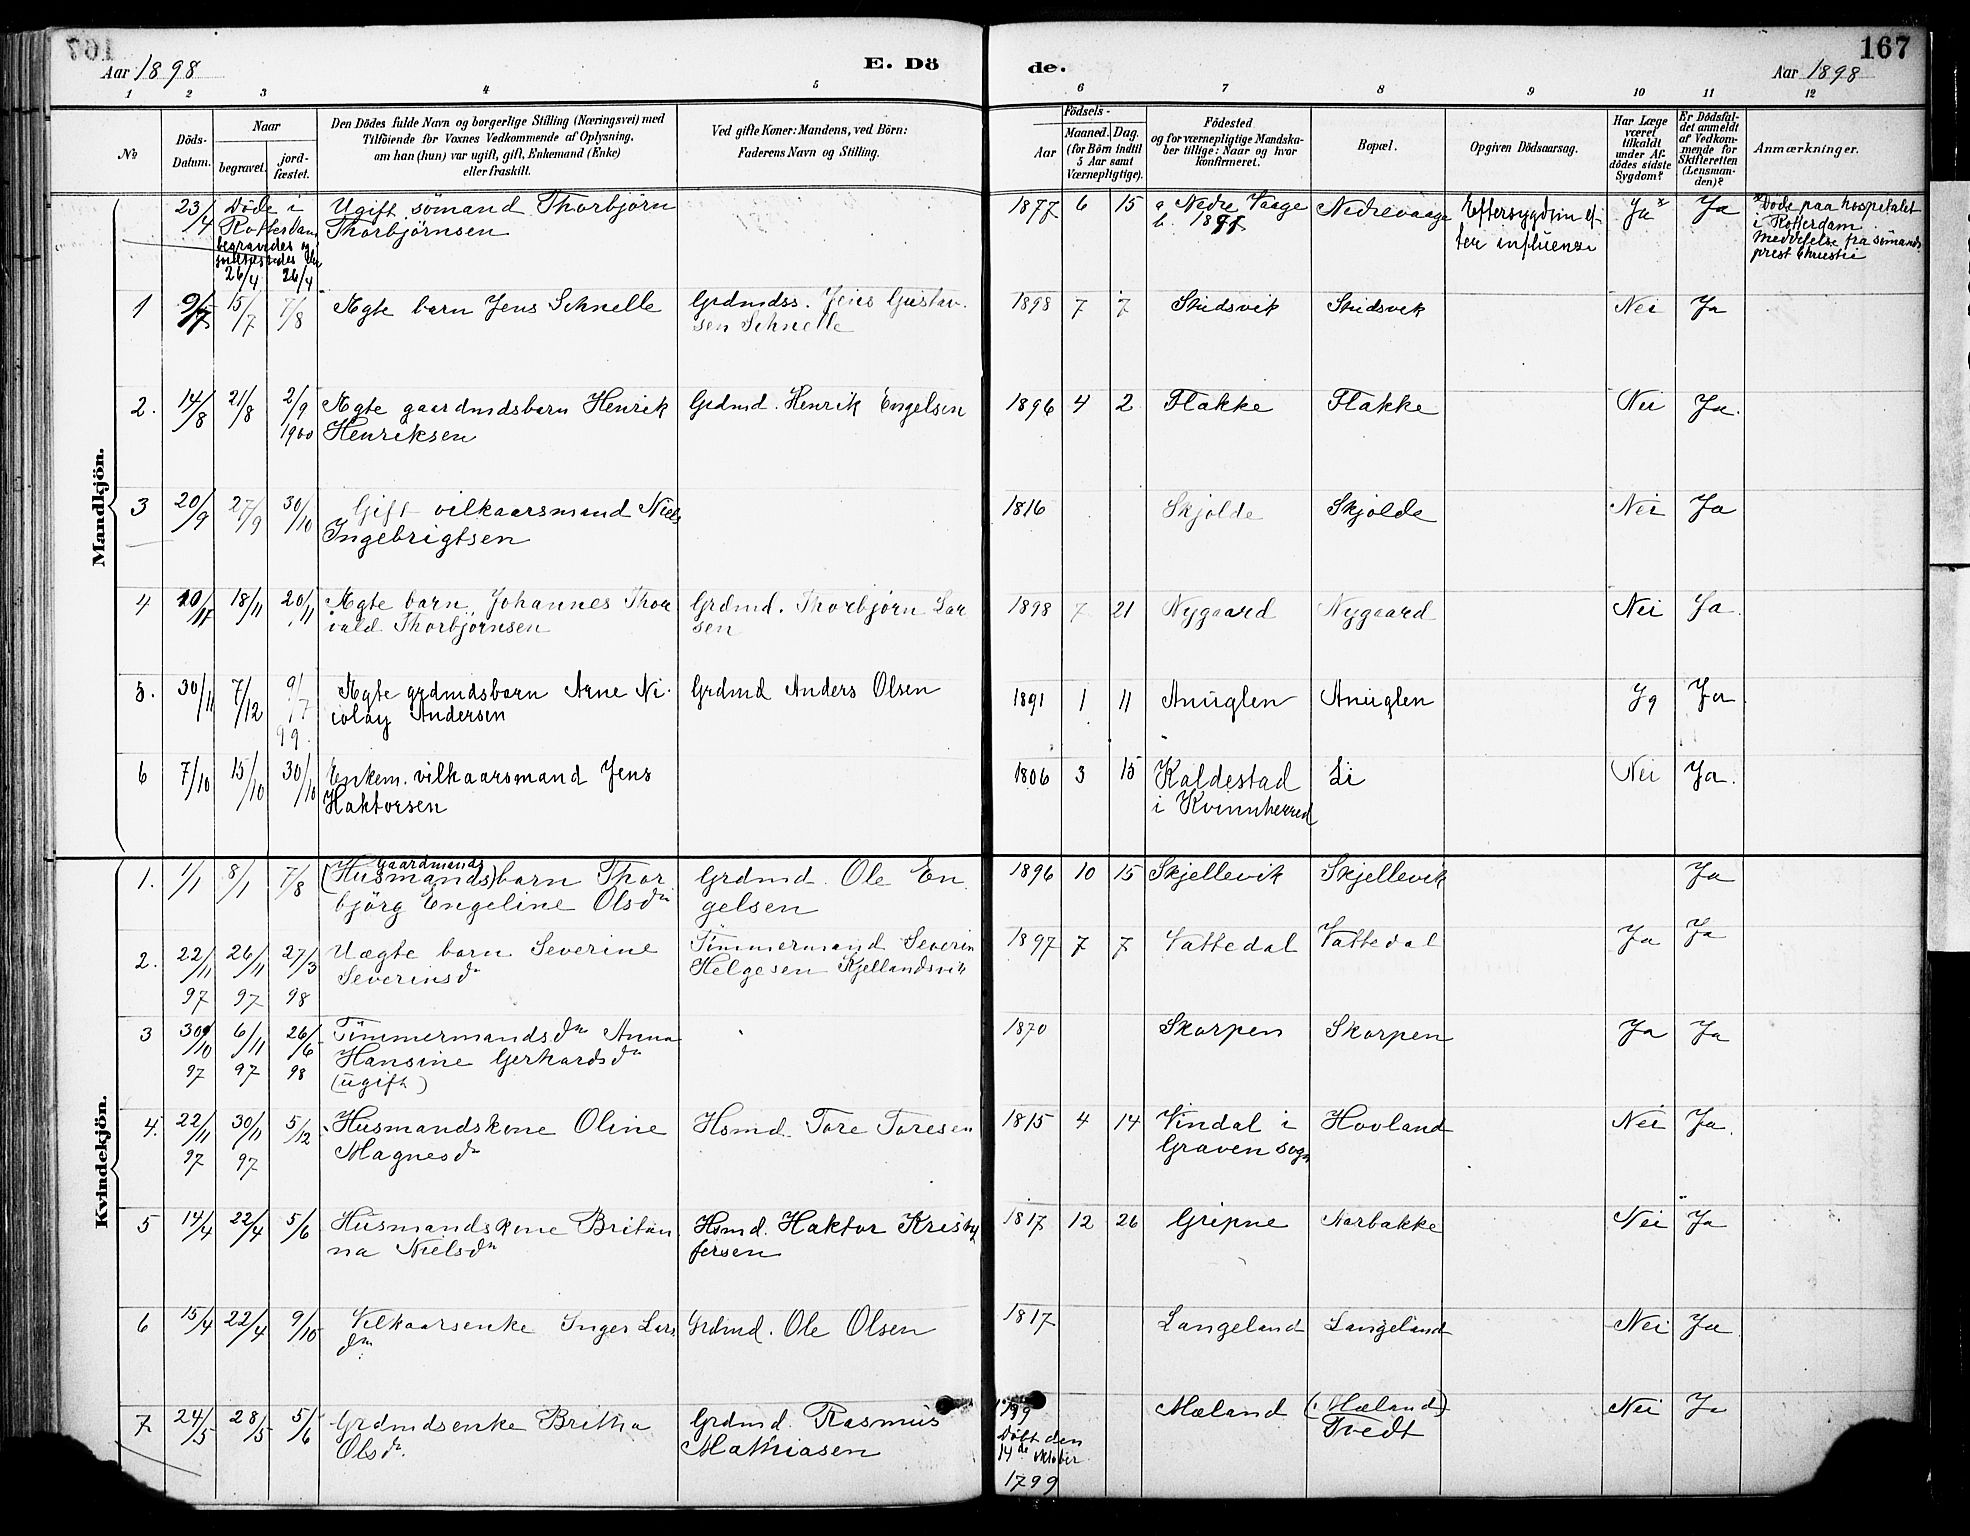 167
Aar 1898
E. Dö
de.
Aar 1898
1 2 3 4 5 6 7 8 9 10 11 12
№
Döds-
Datum.
Naar
begravet.
jord-
fæstet.
Den Dödes fulde Navn og borgerlige Stilling (Næringsvei) med
Tilföiende for Voxnes Vedkommende af Oplysning,
om han (hun) var ugift, gift, Enkemand (Enke)
eller fraskilt.
Ved gifte Koner: Mandens, ved Börn:
Faderens Navn og Stilling.
Födsels-
Aar
Maaned. Dag.
(for Börn indtil
5 Aar samt
Værnepligtige).
Födested
og for værnepligtige Mandska-
ber tillige: Naar og hvor
konfirmeret.
Bopæl.
Opgiven Dödsaarsag.
Har Læge
været
tilkaldt
under Af-
dödes sidste
Sygdom?
Er Dödsfal-
det anmeldt
af Vedkom-
mende for
Skifteretten
(Lensman-
den)?
Anmærkninger.
Mandkjön.
23/4 Døde i Ugift sömand Thorbjørn 1877 6 15 a Nedre Vaage Nedrevaage Eftersygdom ef- Ja× Ja ×Døde paa hospitalet
Rotterdam Thorbjørnsen b. ter influenza i Rotterdam
begravedes og Meddelelse fra sömands
26/4 26/4 prest Christie
1 9/7 15/7 7/8 Ægte barn Jens Schnelle Grdmdss. Jens Gustav- 1898 7 7 Skidsvik Skidsvik Nei Ja
sen Schnelle
2. 14/8 21/8 2/9 Ægte gaardmdsbarn Henrik Grdmd. Henrik Engelsen 1896 4 2 Flakke Flakke Nei Ja.
1900 Henriksen
3 20/9 27/9 30/10 Gift vilkaarsmand Niels 1816 Skjolde Skjolde Nei Ja
Ingebrigtsen
4 10/11 18/11 20/11 Ægte barn, Johannes Thor Grdmd. Thorbjørn Lar 1898 7 21 Nygaard Nygaard Nei Ja.
vald Thorbjørnsen sen
5. 30/11 7/12 9/7 Ægte grdmdsbarn Arne Ni- Grdmd Anders Olsen 1891 1 11 Anuglen Anuglen Ja Ja
99. colay Andersen
6 7/10 15/10 30/10 Enkem. vilkaarsmand Jens 1806 3 15 Kaldestad Li Nei Ja.
Haktorsen i Kvinnherred
Kvindekjön.
Gaardmands
1. 1/1 8/1 7/8 (Husmands)barn Thor Grdmd. Ole En 1896 10 15 Skjellevik Skjellevik Ja
björg Engeline Olsdn gelsen
2. 22/11 26/11 27/3 Uægte barn Severine Timmermand Severin 1897 7 7 Vattedal Vattedal Ja Ja
97 97 98 Severinsdn Helgesen Kjellandsvik
3 30/10 6/11 26/6 Timmermandsdn Anna 1870 Skorpen Skorpen Ja Ja
97 97 98 Hansine Gerhardsdn
(ugift)
4. 22/11 30/11 5/12 Husmandskone Oline Hsmd. Tore Toresen 1815 4 14 Vindal i Hovland Nei Ja.
97 97 Magnesdn Graven sogn
5 14/4 22/4 5/6 Husmandskone Britan Hsmd. Haktor Kristof 1817 12 26 Gripne Narbakke Nei Ja
na Nielsdn fersen
6 15/4 22/4 9/10 Vilkaarsenke Inger Lars Grdmd. Ole Olsen 1817 Langeland Langeland Nei Ja
dn
7 24/5 28/5 5/6 Grdmdsenke Britha Grdmd. Rasmus Mæland (Mæland) Nei Ja
Olsdn Mathiasen Døbt den Tvedt
14de oktober
1799